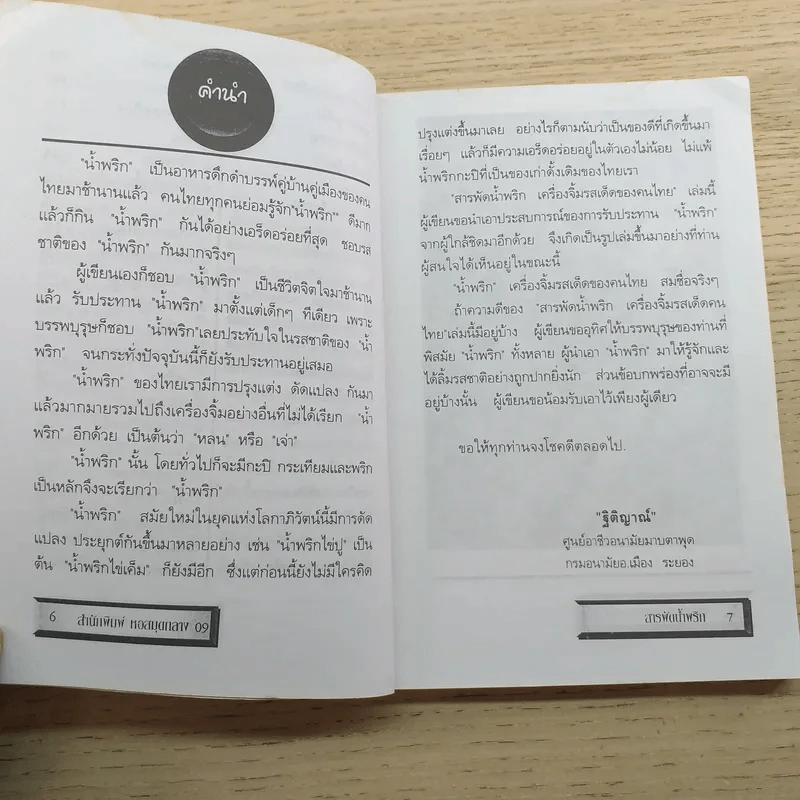 คำนำ
"น้ำพริก" เป็นอาหารดึกดำบรรพ์คู่บ้านคู่เมืองของคน
ไทยมาช้านานแล้ว คนไทยทุกคนย่อมรู้จัก"น้ำพริก" ดีมาก
แล้วก็กิน "น้ำพริก" กันได้อย่างเอร็ดอร่อยที่สุด ชอบรส
ชาติของ "น้ำพริก" กันมากจริงๆ
ผู้เขียนเองก็ชอบ "น้ำพริก" เป็นชีวิตจิตใจมาช้านาน
แล้ว รับประทาน "น้ำพริก" มาตั้งแต่เด็กๆ ทีเดียว เพราะ
บรรพบุรุษก็ชอบ "น้ำพริก"เลยประทับใจในรสชาติของ "น้ำ
พริก" จนกระทั่งปัจจุบันนี้ก็ยังรับประทานอยู่เสมอ
"น้ำพริก" ของไทยเรามีการปรุงแต่ง ดัดแปลง กันมา
แล้วมากมายรวมไปถึงเครื่องจิ้มอย่างอื่นที่ไม่ได้เรียก "น้ำ
พริก" อีกด้วย เป็นต้นว่า "หลน" หรือ "เจ่า"
"น้ำพริก" นั้น โดยทั่วไปก็จะมีกะปิ กระเทียมและพริก
เป็นหลักจึงจะเรียกว่า "น้ำพริก"
"น้ำพริก" สมัยใหม่ในยุคแห่งโลกาภิวัตน์นี้มีการดัด
แปลง ประยุกต์กันขึ้นมาหลายอย่าง เช่น "น้ำพริกไข่ปู" เป็น
ต้น "น้ำพริกไข่เค็ม" ก็ยังมีอีก ซึ่งแต่ก่อนนี้ยังไม่มีใครคิด
6 สำนักพิมพ์ หอสมุดกลาง 09
ปรุงแต่งขึ้นมาเลย อย่างไรก็ตามนับว่าเป็นของดีที่เกิดขึ้นมา
เรื่อยๆ แล้วก็มีความเอร็ดอร่อยอยู่ในตัวเองไม่น้อย ไม่แพ้
น้ำพริกกะปิที่เป็นของเก่าดั้งเดิมของไทยเรา
"สารพัดน้ำพริก เครื่องจิ้มรสเด็ดของคนไทย" เล่มนี้
ผู้เขียนขอนำเอาประสบการณ์ของการรับประทาน "น้ำพริก"
จากผู้ใกล้ชิดมาอีกด้วย จึงเกิดเป็นรูปเล่มขึ้นมาอย่างที่ท่าน
ผู้สนใจได้เห็นอยู่ในขณะนี้
"น้ำพริก" เครื่องจิ้มรสเด็ดของคนไทย สมชื่อจริงๆ
ถ้าความดีของ "สารพัดน้ำพริก เครื่องจิ้มรสเด็ดคน
ไทย"เล่มนี้มีอยู่บ้าง ผู้เขียนขออุทิศให้บรรพบุรุษของท่านที่
พิสมัย "น้ำพริก" ทั้งหลาย ผู้นำเอา "น้ำพริก" มาให้รู้จักและ
ได้ลิ้มรสชาติอย่างถูกปากยิ่งนัก ส่วนข้อบกพร่องที่อาจจะมี
อยู่บ้างนั้น ผู้เขียนขอน้อมรับเอาไว้เพียงผู้เดียว
ขอให้ทุกท่านจงโชคดีตลอดไป.
"ฐิติญาณ์"
ศูนย์อาชีวอนามัยมาบตาพุด
กรมอนามัยอ.เมือง ระยอง
สารพัดน้ำพริก 7